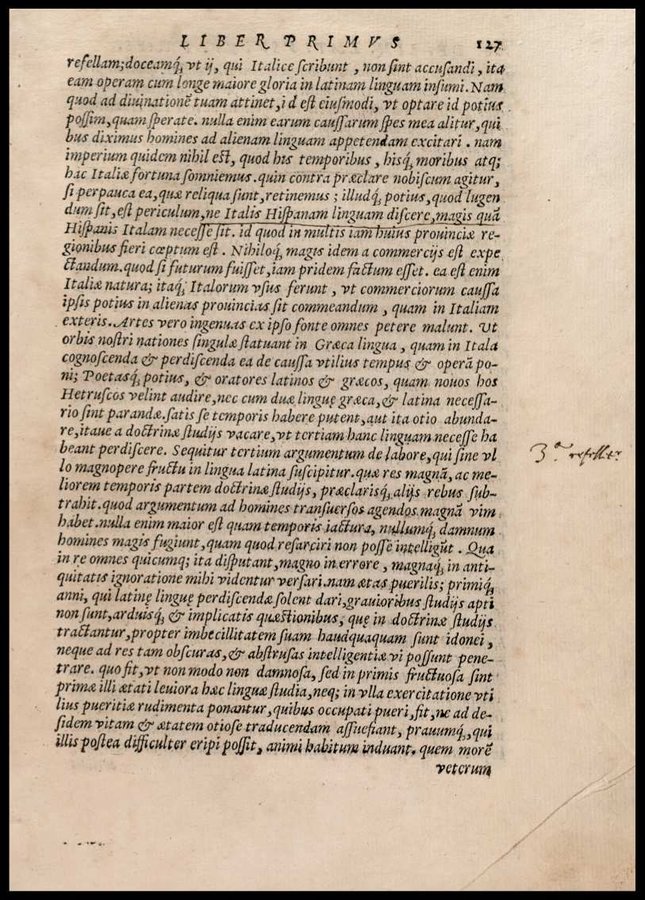 LIBER PRIMVS 127
refellam; doceamq́, vt ij, qui Italice ſcribunt, non ſint accuſandi, ita
eam operam cum longe maiore gloria in latinam linguam inſumi. Nam
quod ad diuinationē tuam attinet, id eſt eiuſmodi, vt optare id potius
poſſim, quam ſperate. nulla enim earum cauſſarum ſpes mea alitur, qui
bus diximus homines ad alienam linguam appetendam excitari. nam
imperium quidem nihil eſt, quod his temporibus, hisq́, moribus atq;
hac Italiæ fortuna ſomniemus. quin contra præclare nobiscum agitur,
ſi perpauca ea, quæ reliqua ſunt, retinemus; illudq́, potius, quod lugen
dum ſit, eſt periculum, ne Italis Hiſpanam linguam diſcere, magis quā
Hiſpanis Italam neceſſe ſit. id quod in multis iam huius prouinciæ re-
gionibus fieri cœptum eſt. Nihiloq́, magis idem a commercijs eſt expe
ctandum. quod ſi futurum fuiſſet, iam pridem factum eſſet. ea eſt enim
Italiæ natura; itaq́, Italorum vſus ferunt, vt commerciorum cauſſa
ipſis potius in alienas prouincias ſit commeandum, quam in Italiam
exteris. Artes vero ingenuas ex ipſo fonte omnes petere malunt. Vt
orbis noſtri nationes ſingulæ ſtatuant in Græca lingua, quam in Itala
cognoſcenda & perdiſcenda ea de cauſſa vtilius tempus & operā po-
ni; Poetasq́, potius, & oratores latinos & græcos, quam nouos hos
Hetruſcos velint audire, nec cum duæ linguę græca, & latina neceſſa-
rio ſint parandæ. ſatis ſe temporis habere putent, aut ita otio abunda-
re, itaue a doctrinæ ſtudijs vacare, vt tertiam hanc linguam neceſſe ha
beant perdiſcere. Sequitur tertium argumentum de labore, qui ſine vl
lo magnopere fructu in lingua latina ſuſcipitur. quæ res magnā, ac me-
liorem temporis partem doctrinæ ſtudijs, præclarisq́, alijs rebus ſub-
trahit. quod argumentum ad homines tranſuerſos agendos magnā vim
habet. nulla enim maior eſt quam temporis iactura, nullumq́, damnum
homines magis fugiunt, quam quod reſarciri non poſſe intelligūt. Qua
in re omnes quicumq; ita diſputant, magno in errore, magnaq́, in anti-
quitatis ignoratione mihi videntur verſari. nam ætas puerilis; primiq́,
anni, qui latinę linguę perdiſcendæ ſolent dari, grauioribus ſtudijs apti
non ſunt, arduisq́, & implicatis quæſtionibus, quę in doctrinæ ſtudijs
tractantur, propter imbecillitatem ſuam haudquaquam ſunt idonei,
neque ad res tam obſcuras, & abſtruſas intelligentiæ vi poſſunt pene-
trare. quo fit, vt non modo non damnoſa, ſed in primis fructuoſa ſint
primæ illi ætati leuiora hæc linguæ ſtudia, neq; in vlla exercitatione vti
lius pueritiæ rudimenta ponantur, quibus occupati pueri, fit, ne ad de-
ſidem vitam & ætatem otioſe traducendam aſſueſiant, prauumq́,, qui
illis poſtea difficulter eripi poſſit, animi habitum induant. quem morē
veterum